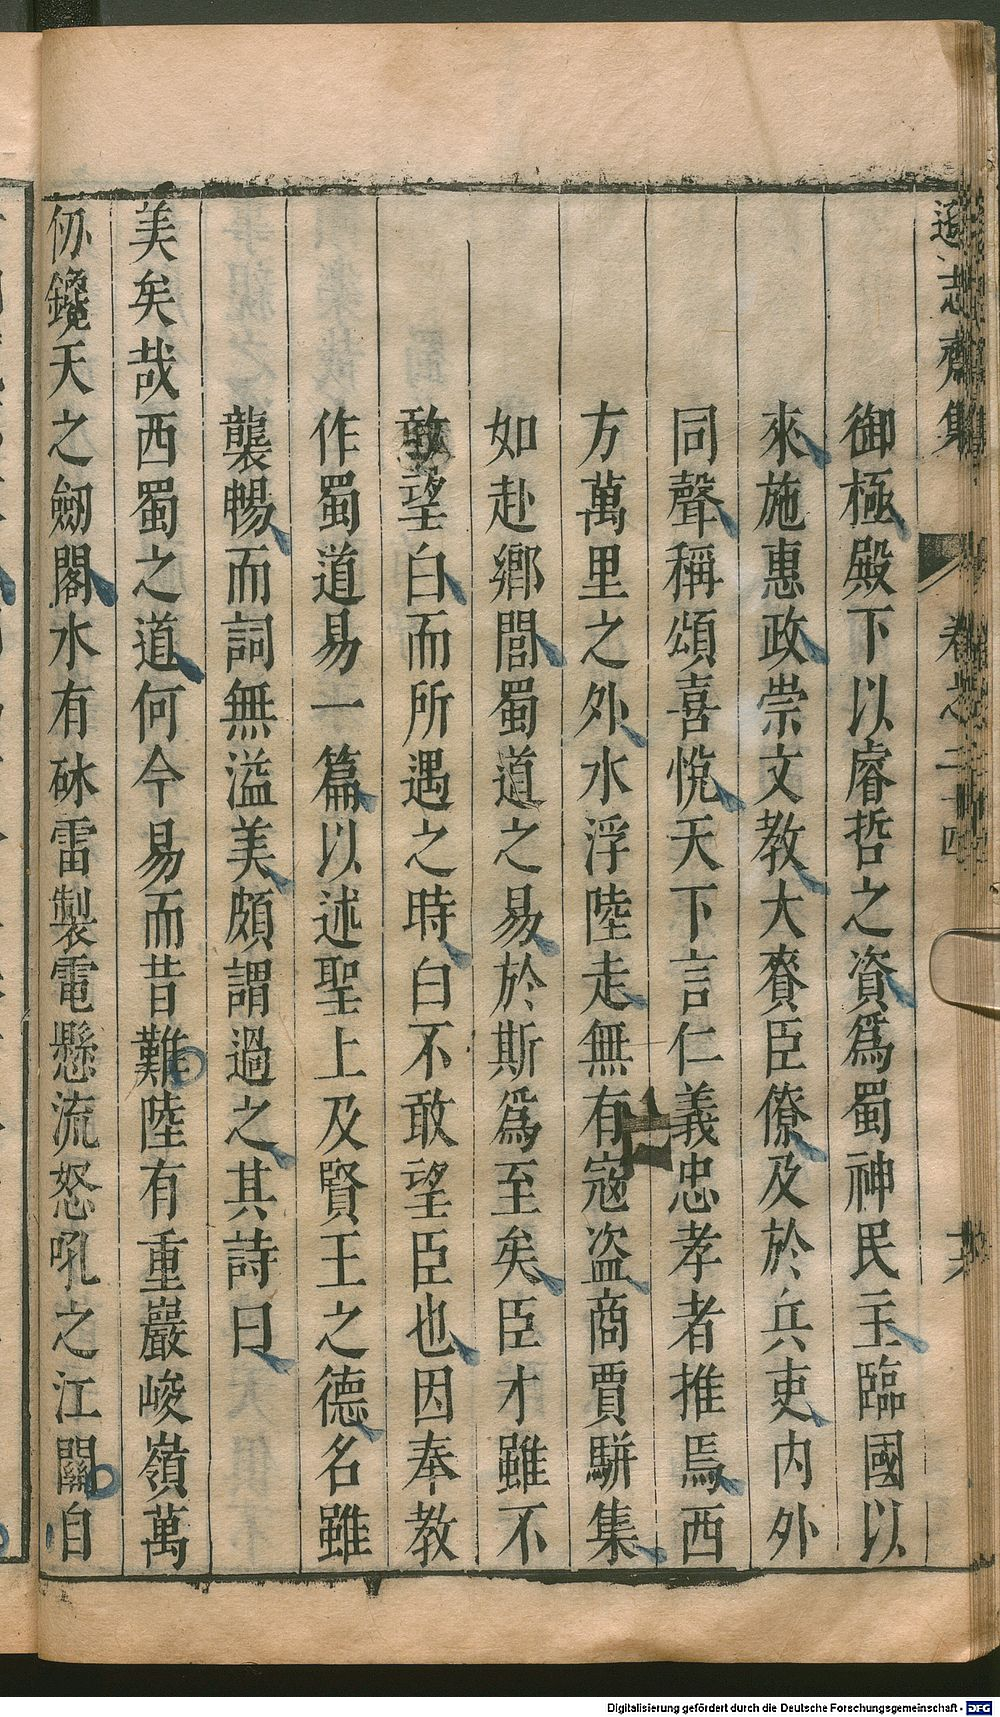 遜志齋集 卷之二十四
御極殿下以睿哲之資爲蜀神民主臨國以
來施惠政崇文教大賚臣僚及於兵吏内外
同聲稱頌喜悅天下言仁義忠孝者推焉西
方萬里之外水浮陸走無有寇盗商賈駢集
如赴鄉閭蜀道之易於斯爲至矣臣才雖不
敢望白而所遇之時白不敢望臣也因奉教
作蜀道易一篇以述聖上及賢王之德名雖
襲暢而詞無溢美頗謂過之其詩曰
美矣哉西蜀之道何今易而昔難陸有重巖峻嶺萬
仞鑱天之劒閣水有砅雷製電懸流怒吼之江關自
Digitalisierung gefördert durch die Deutsche Forschungsgemeinschaft - DFG